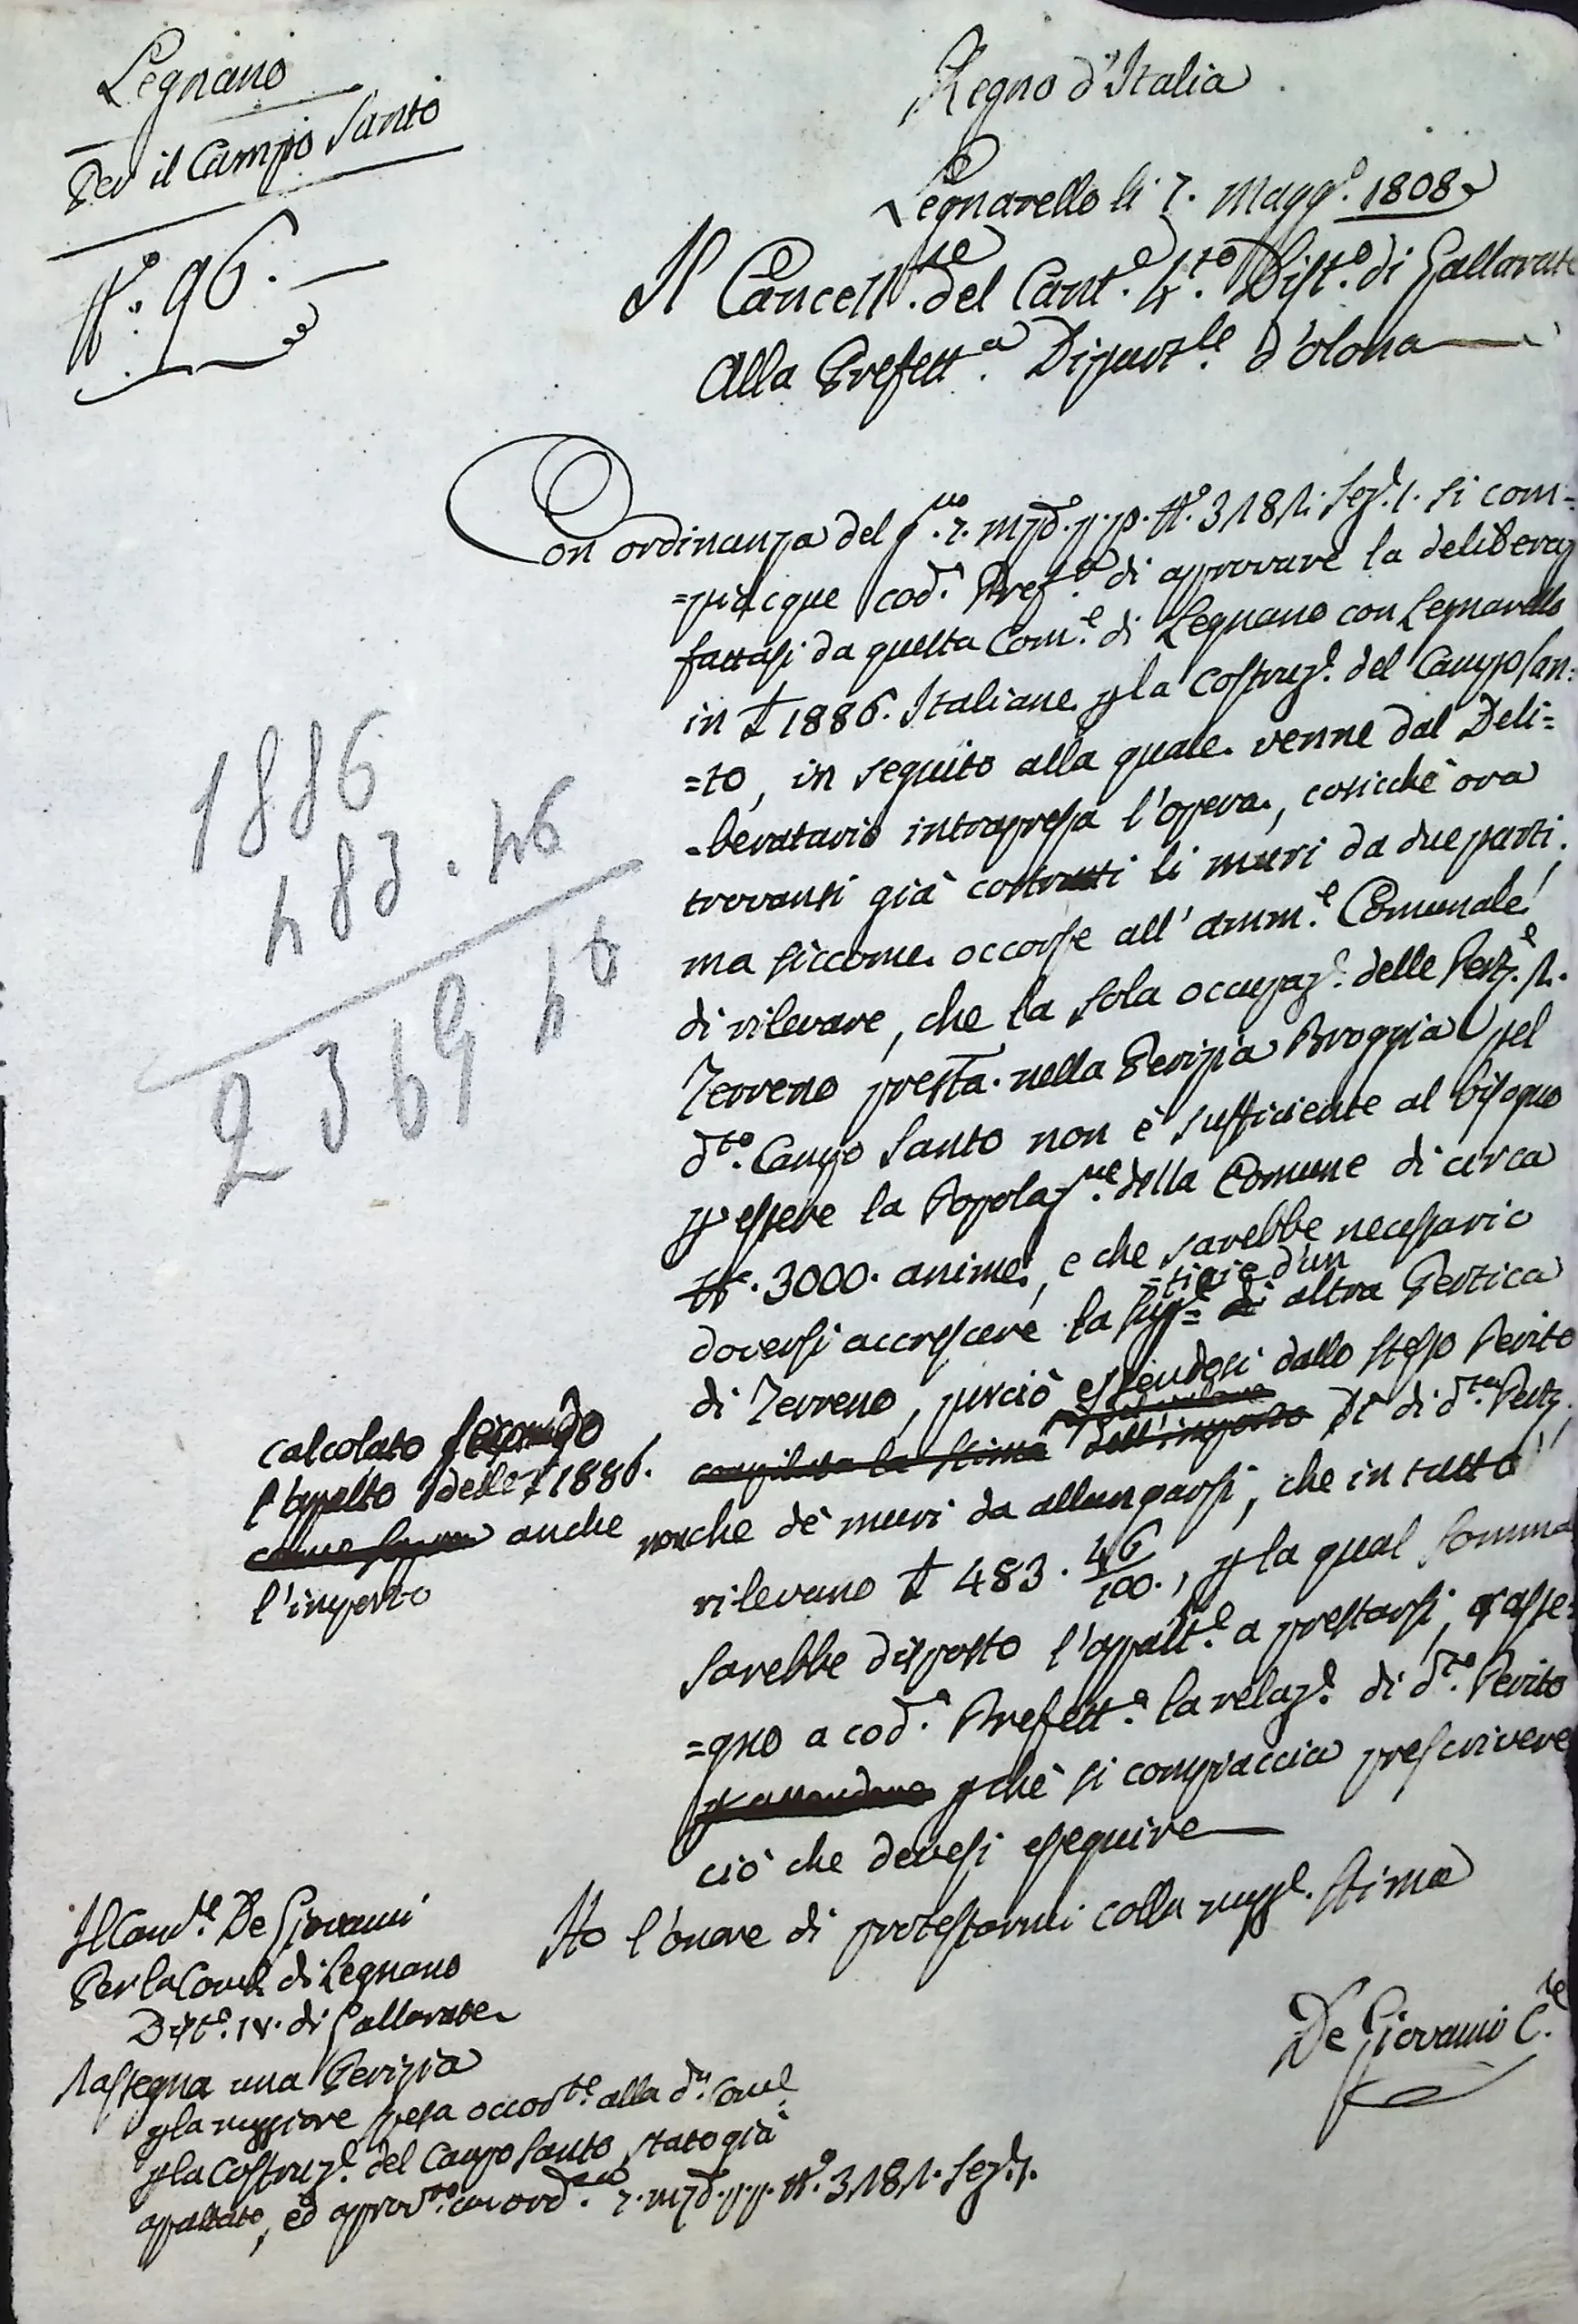 Legnano
Per il Campo Santo
N.º 96.
Regno d'Italia
Legnarello li 7. Magg.º 1808
Il Cancell.re del Cant.e 4.to Dist.o di Gallarate
Alla Prefett.a Dipart.le d'Olona
Con ordinanza del g.no p.p. N.º 3181. Sez.e 1. si com=
=piacque cod.a Pref.a di approvare la deliberaz
fattasi da questa Com.e di Legnano con Legnarello
in £ 1886. Italiane p la costruz.e del Campo San=
=to, in seguito alla quale venne dal Deli=
=beratario intrapresa l'opera, cosicchè ora
trovansi già costrutti li muri da due parti,
ma siccome occorse all'amm.e Comunale
di rilevare, che la sola occupaz.e delle Pert.e
Terreno presta. nella Perizia Broggia pel
d.to Campo Santo non è sufficiente al bisogno
p essere la Popolaz.ne della Comune di circa
N.º 3000. anime, e che sarebbe necessario
doversi accrescere la sup.e= =ficie d'un altra Pertica
di Terreno, perciò essendosi dallo stesso Perito
calcolato secondo
l'appalto delle £ 1886.
anche
l'importo
compilata la stima dell'importo di d.ta Pert.
nonchè de' muri da allungarsi, che in tutto
rilevano £ 483. 46/100., p la qual somma
sarebbe disposto l'appalt.e a prestarsi, rasse=
=gno a cod.a Prefett.a la relaz.e di d.to Perito
pchè si compiaccia prescrivere
ciò che devesi eseguire
Ho l'onore di protestarmi colla magg.e stima
De Giovanni C.re
1886
483.46
2369 46
Il Canc.re De Giovanni
Per la Com.e di Legnano
Dist.o IV. di Gallarate
Rassegna una Perizia
p la maggiore spesa occor.te alla d.a Com.e
p la costruz.e del Campo Santo stato già
appaltato, ed approv.to con ord.za p.p. N.º 3181. Sez.e 1.